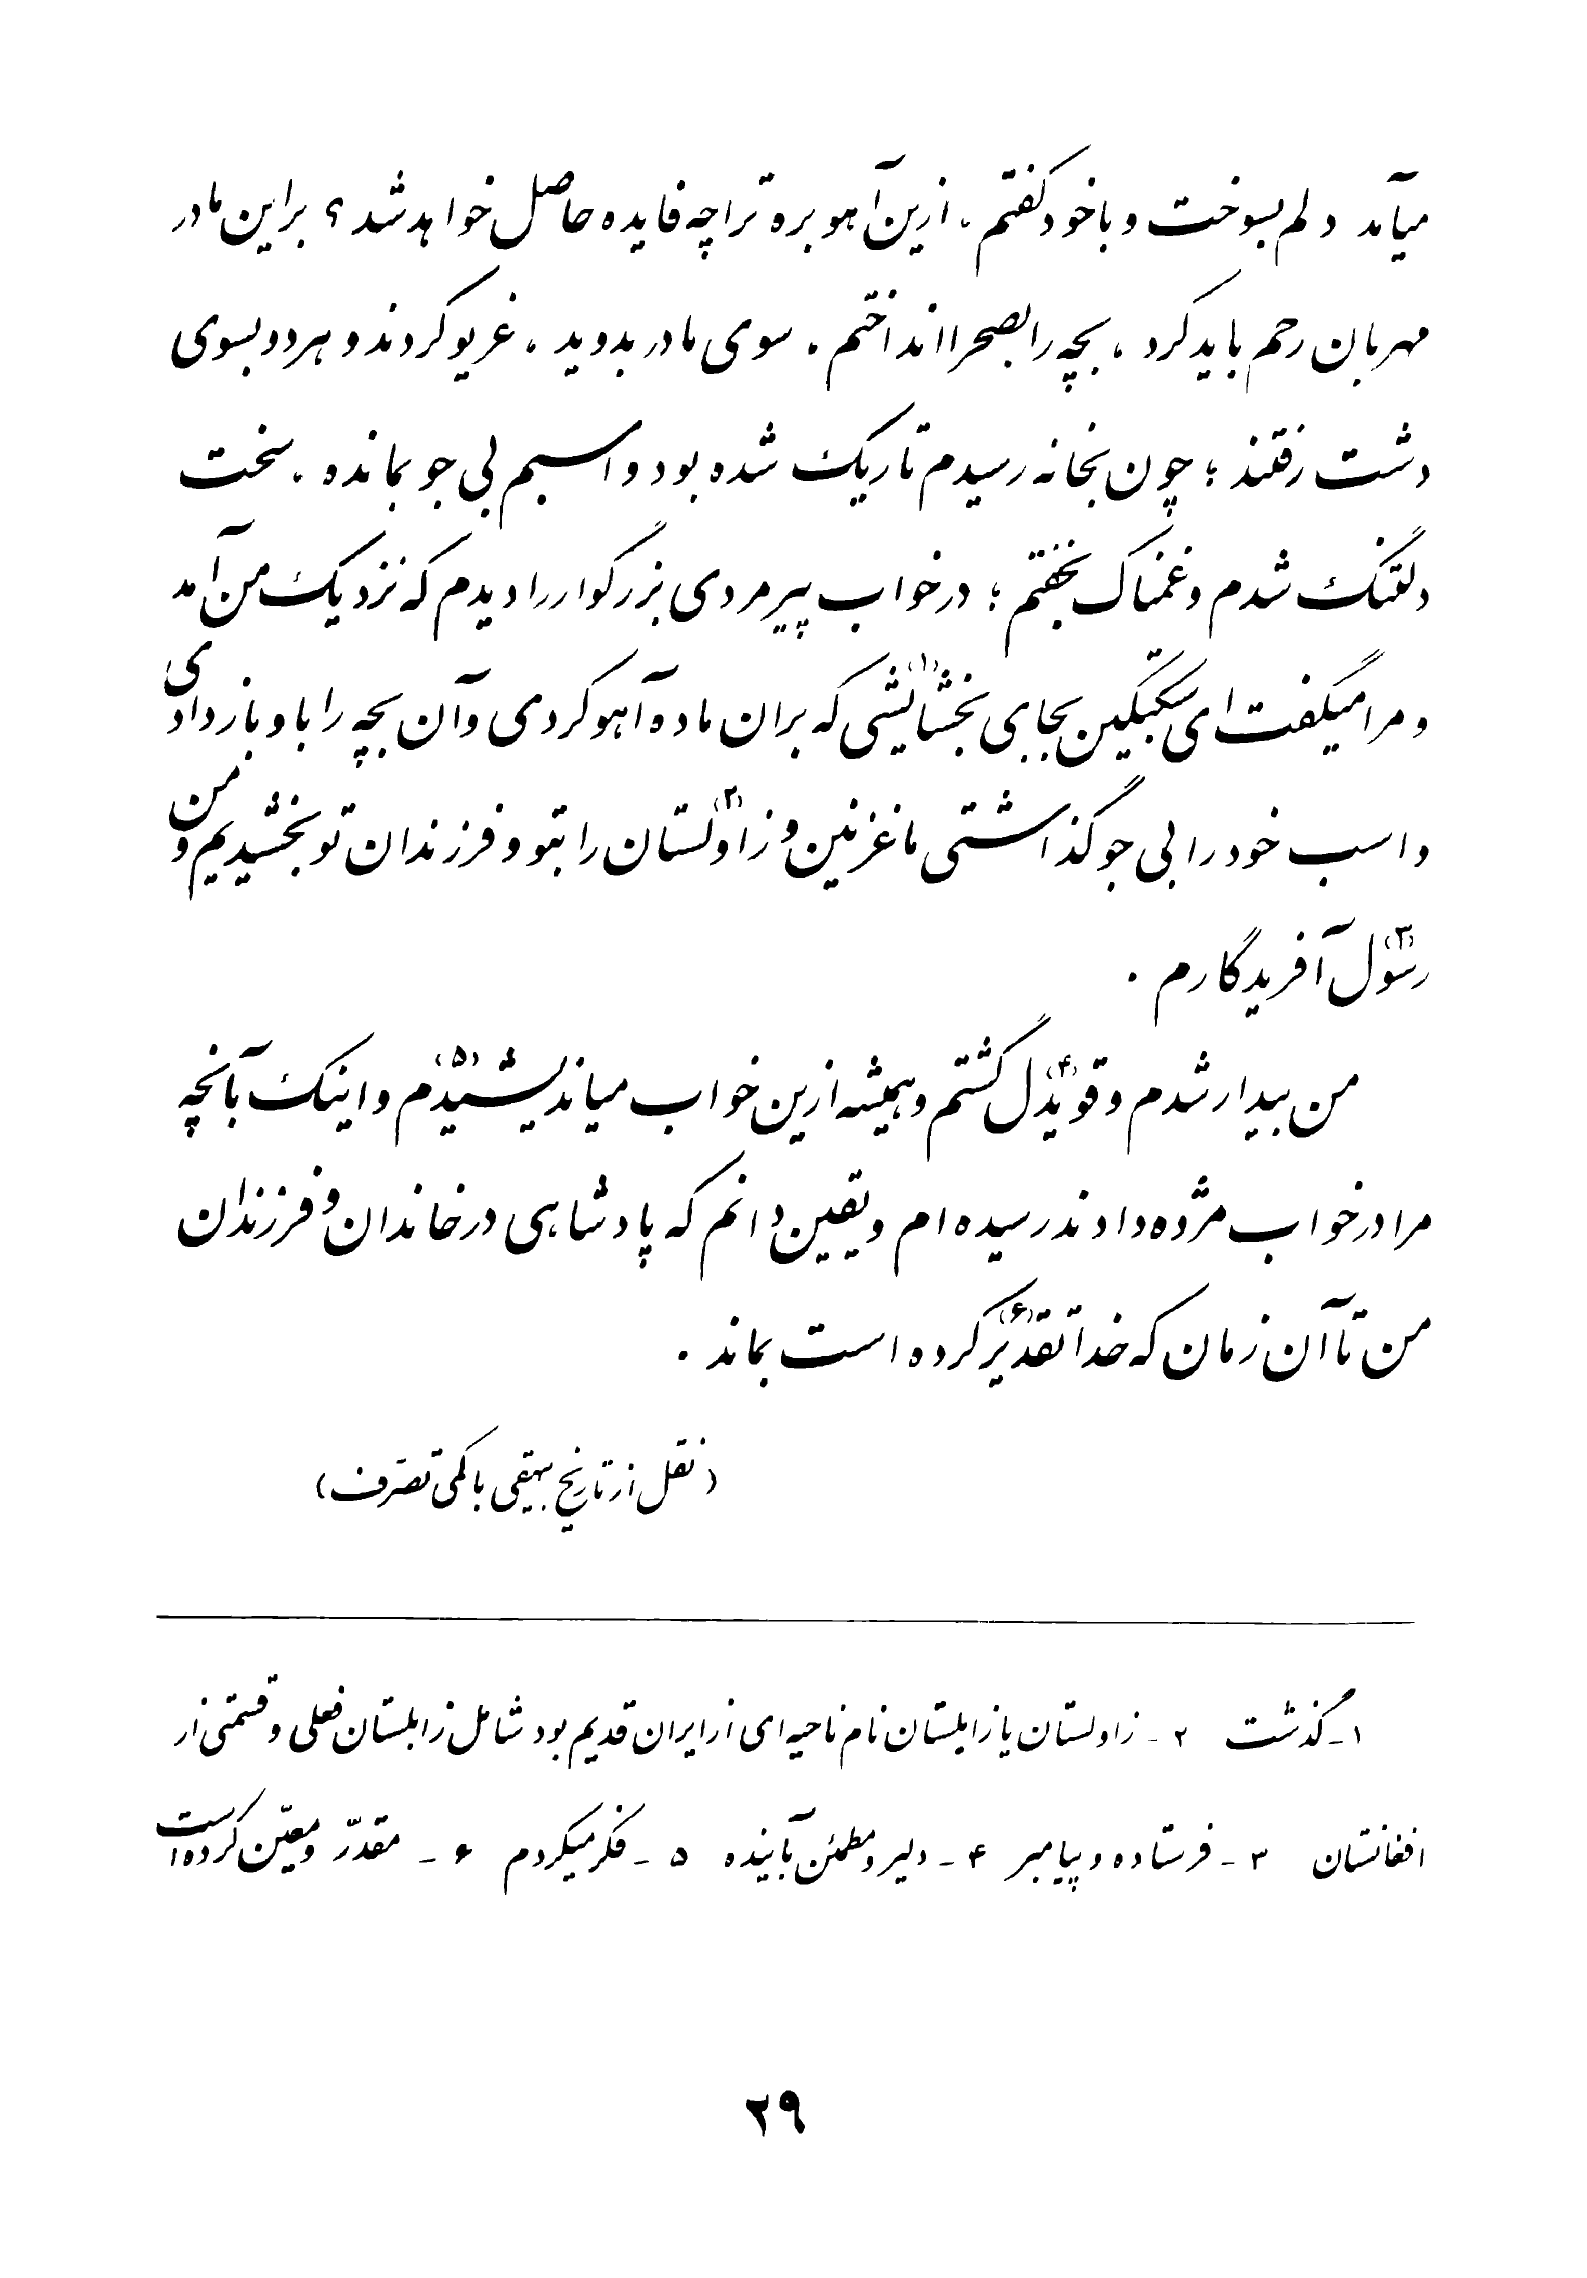 میآمد دلم بسوخت و با خود گفتم، ازین آهو بره ترا چه فایده حاصل خواهد شد؟ بر این مادر
مهربان رحم باید کرد، بچه را بصحرا انداختم. سوی مادر بدوید، غریو کردند و هر دو بسوی
دشت رفتند؛ چون بخانه رسیدم تاریک شده بود و اسبم بی جو بمانده. سخت
دلتنگ شدم و غمناک بخفتم؛ در خواب پیرمردی بزرگوار را دیدم که نزدیک من آمد
و مرا میگفت ای سبکتگین بجای بخشایشی(۱) که بر آن ماده آهو کردی و آن بچه را باو باز دادی
و اسب خود را بی جو گذاشتی ما غزنین و زاولستان(۲) را بتو و فرزندان تو بخشیدیم و من
رسول(۳) آفریدگارم.
من بیدار شدم و قویدل(۴) گشتم و همیشه ازین خواب میاندیشیدم(۵) و اینک بآنچه
مرا در خواب مژده دادند رسیده ام و یقین دانم که پادشاهی در خاندان و فرزندان
من تا آن زمان که خدا تقدیر(۶) کرده است بماند.
(نقل از تاریخ بیهقی با کمی تصرّف)
۱- گذشت ۲- زاولستان یا زابلستان نام ناحیه ای از ایران قدیم بود شامل زابلستان فعلی و قسمتی از
افغانستان ۳- فرستاده و پیامبر ۴- دلیر و مطمئن بآینده ۵- فکر میکردم ۶- مقدّر و معیّن کرده است
۲۹